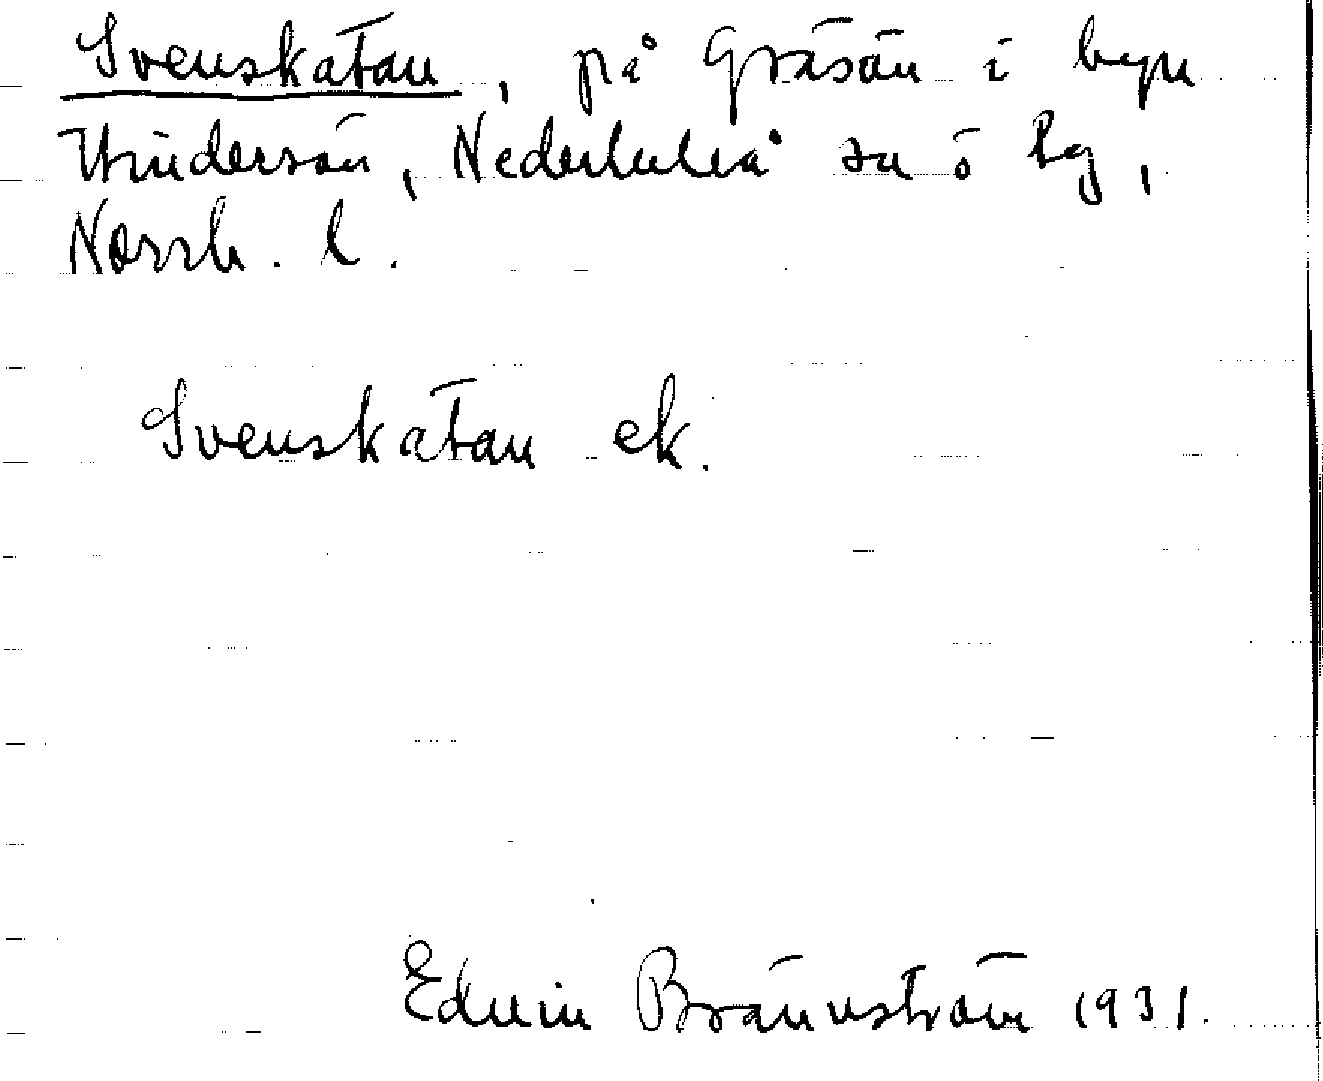 Svenskatan, på Gräsön i byn
Hindersön, Nederluleå sn o tg,
Norrb. l.
Svenskatan ek.
Edvin Brännström 1931.